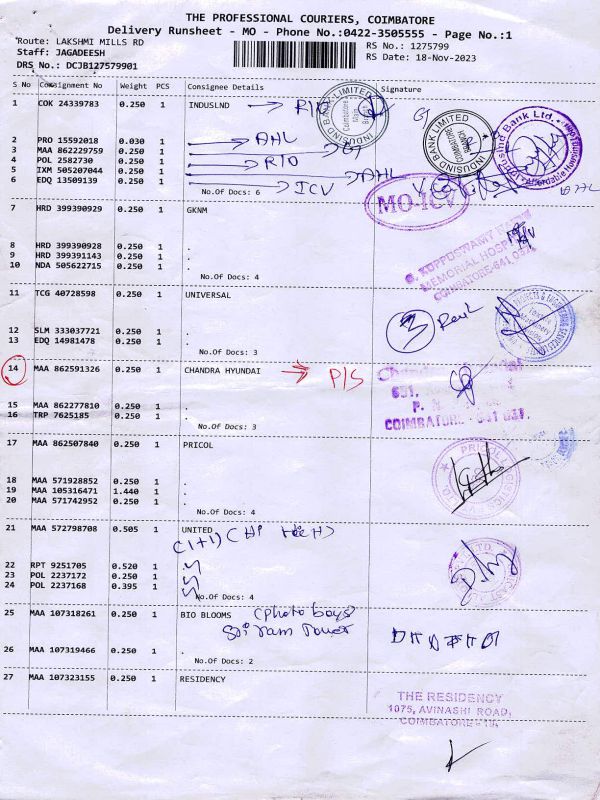 THE PROFESSIONAL COURIERS, COIMBATORE
Delivery Runsheet - MO - Phone No.:0422-3505555 - Page No.:1
Route: LAKSHMI MILLS RD
RS No.: 1275799
Staff: JAGADEESH
RS Date: 18-Nov-2023
DRS No.: DCJB127579901
S No Consignment No Weight PCS Consignee Details Signature
1 COK 24339783 0.250 1 INDUSLND
2 PRO 15592018 0.030 1 AHL
3 MAA 862229759 0.250 1
4 POL 2582730 0.250 1 RTO
5 IXM 505207044 0.250 1 AHL
6 EDQ 13509139 0.250 1 ICV
No.Of Docs: 6
INDUSIND BANK LIMITED
Coimbatore Main
INDUSIND BANK LIMITED
COIMBATORE
IndusInd Bank Ltd.
Affordable Housing
MO-ICV
7 HRD 399390929 0.250 1 GKNM
8 HRD 399390928 0.250 1 .
9 HRD 399391143 0.250 1 .
10 NDA 505622715 0.250 1 .
No.Of Docs: 4
G. KUPPUSWAMY NAIDU
MEMORIAL HOSPITAL
COIMBATORE-641 037
11 TCG 40728598 0.250 1 UNIVERSAL
12 SLM 333037721 0.250 1 .
13 EDQ 14981478 0.250 1 .
No.Of Docs: 3
3
14 MAA 862591326 0.250 1 CHANDRA HYUNDAI P/S
15 MAA 862277810 0.250 1 .
16 TRP 7625185 0.250 1 .
No.Of Docs: 3
COIMBATORE - 641 037.
17 MAA 862507840 0.250 1 PRICOL
18 MAA 571928852 0.250 1 .
19 MAA 105316471 1.440 1 .
20 MAA 571742952 0.250 1 .
No.Of Docs: 4
PRICOL LOGISTICS
21 MAA 572798708 0.505 1 UNITED
(1+1)
22 RPT 9251705 0.520 1
23 POL 2237172 0.250 1
24 POL 2237168 0.395 1
No.Of Docs: 4
25 MAA 107318261 0.250 1 BIO BLOOMS (photo boys)
Sri Ram Tower
26 MAA 107319466 0.250 1 .
No.Of Docs: 2
27 MAA 107323155 0.250 1 RESIDENCY
THE RESIDENCY
1075, AVINASHI ROAD,
COIMBATORE - 18.